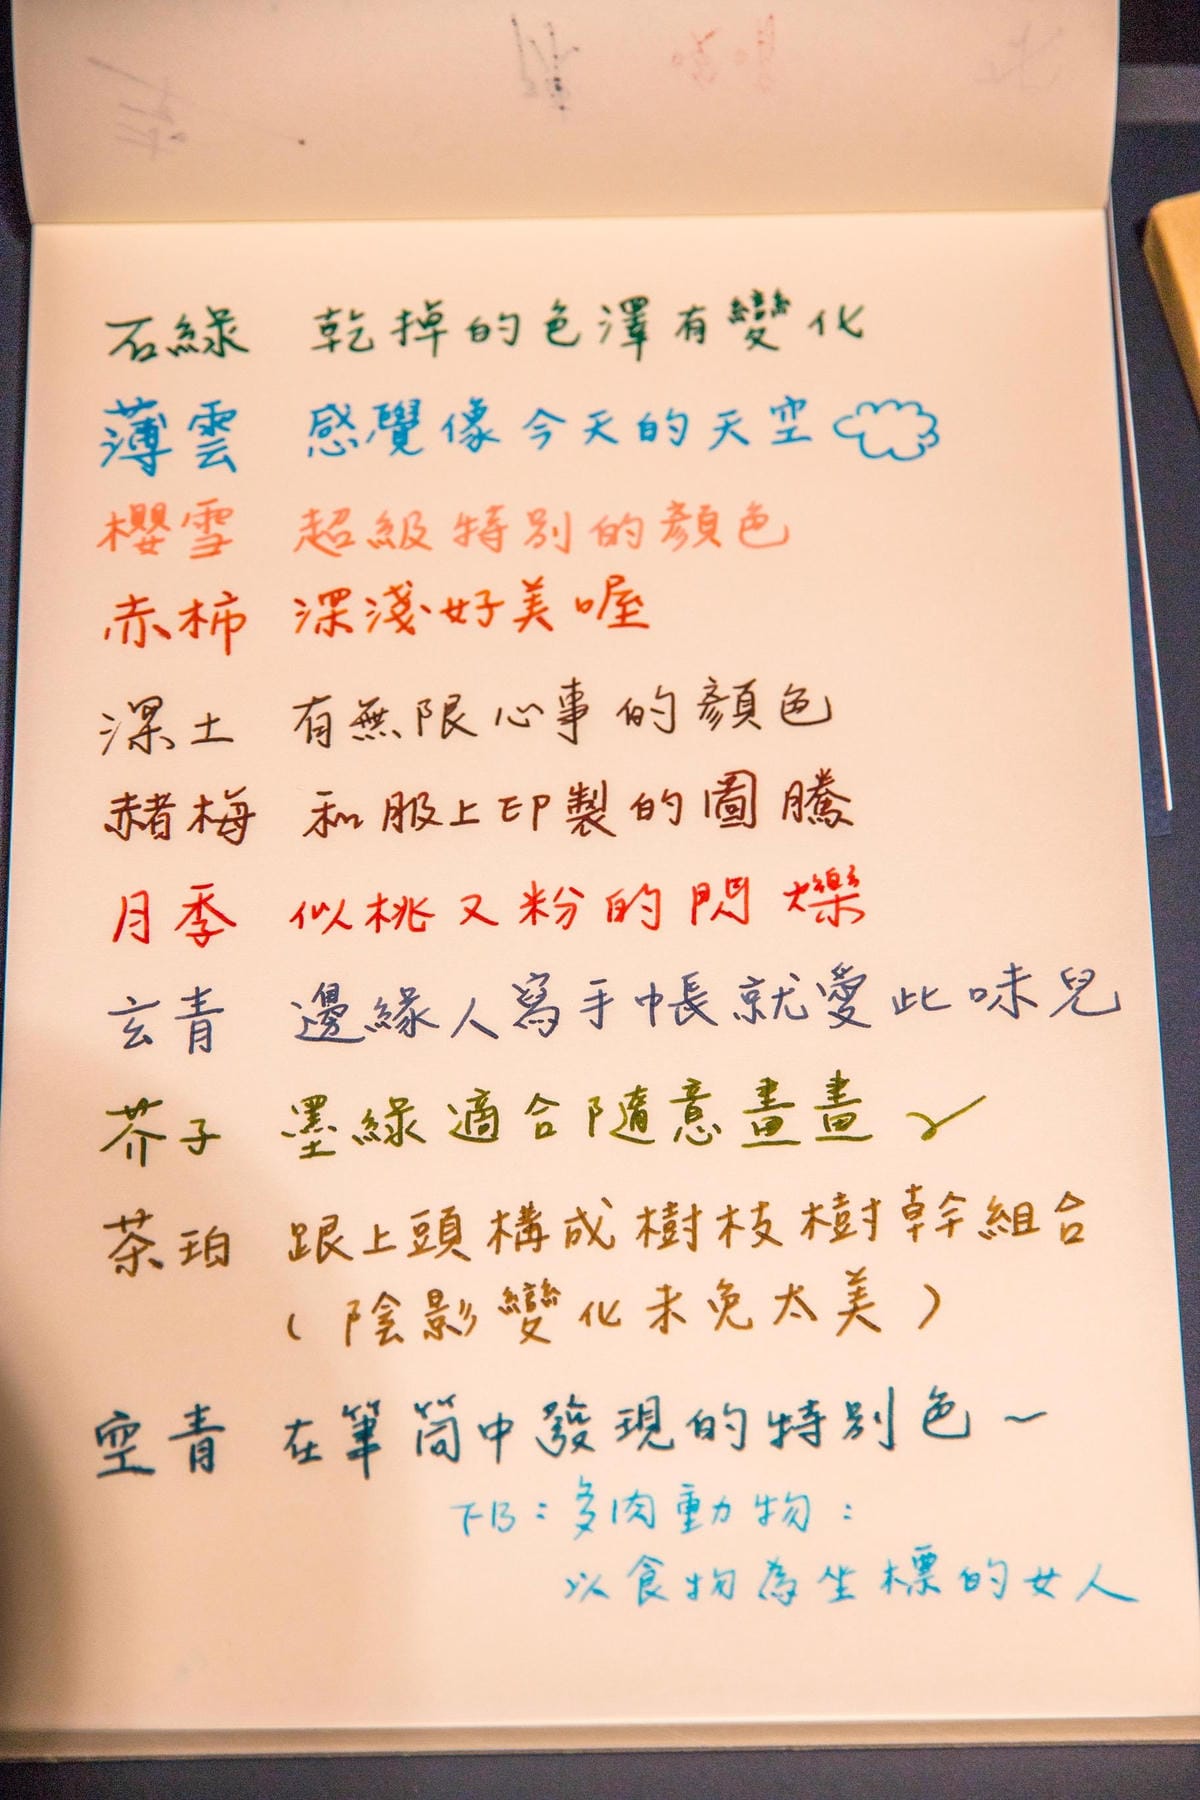 石綠 乾掉的色澤有變化
薄雲 感覺像今天的天空
櫻雪 超級特別的顏色
赤柿 深淺好美喔
深土 有無限心事的顏色
赭梅 和服上印製的圖騰
月季 似桃又粉的閃爍
玄青 邊緣人寫手帳就愛此味兒
芥子 墨綠適合隨意畫畫
茶珀 跟上頭構成樹枝樹幹組合
(陰影變化未免太美)
空青 在筆筒中發現的特別色~
FB:多肉動物:
以食物為坐標的女人